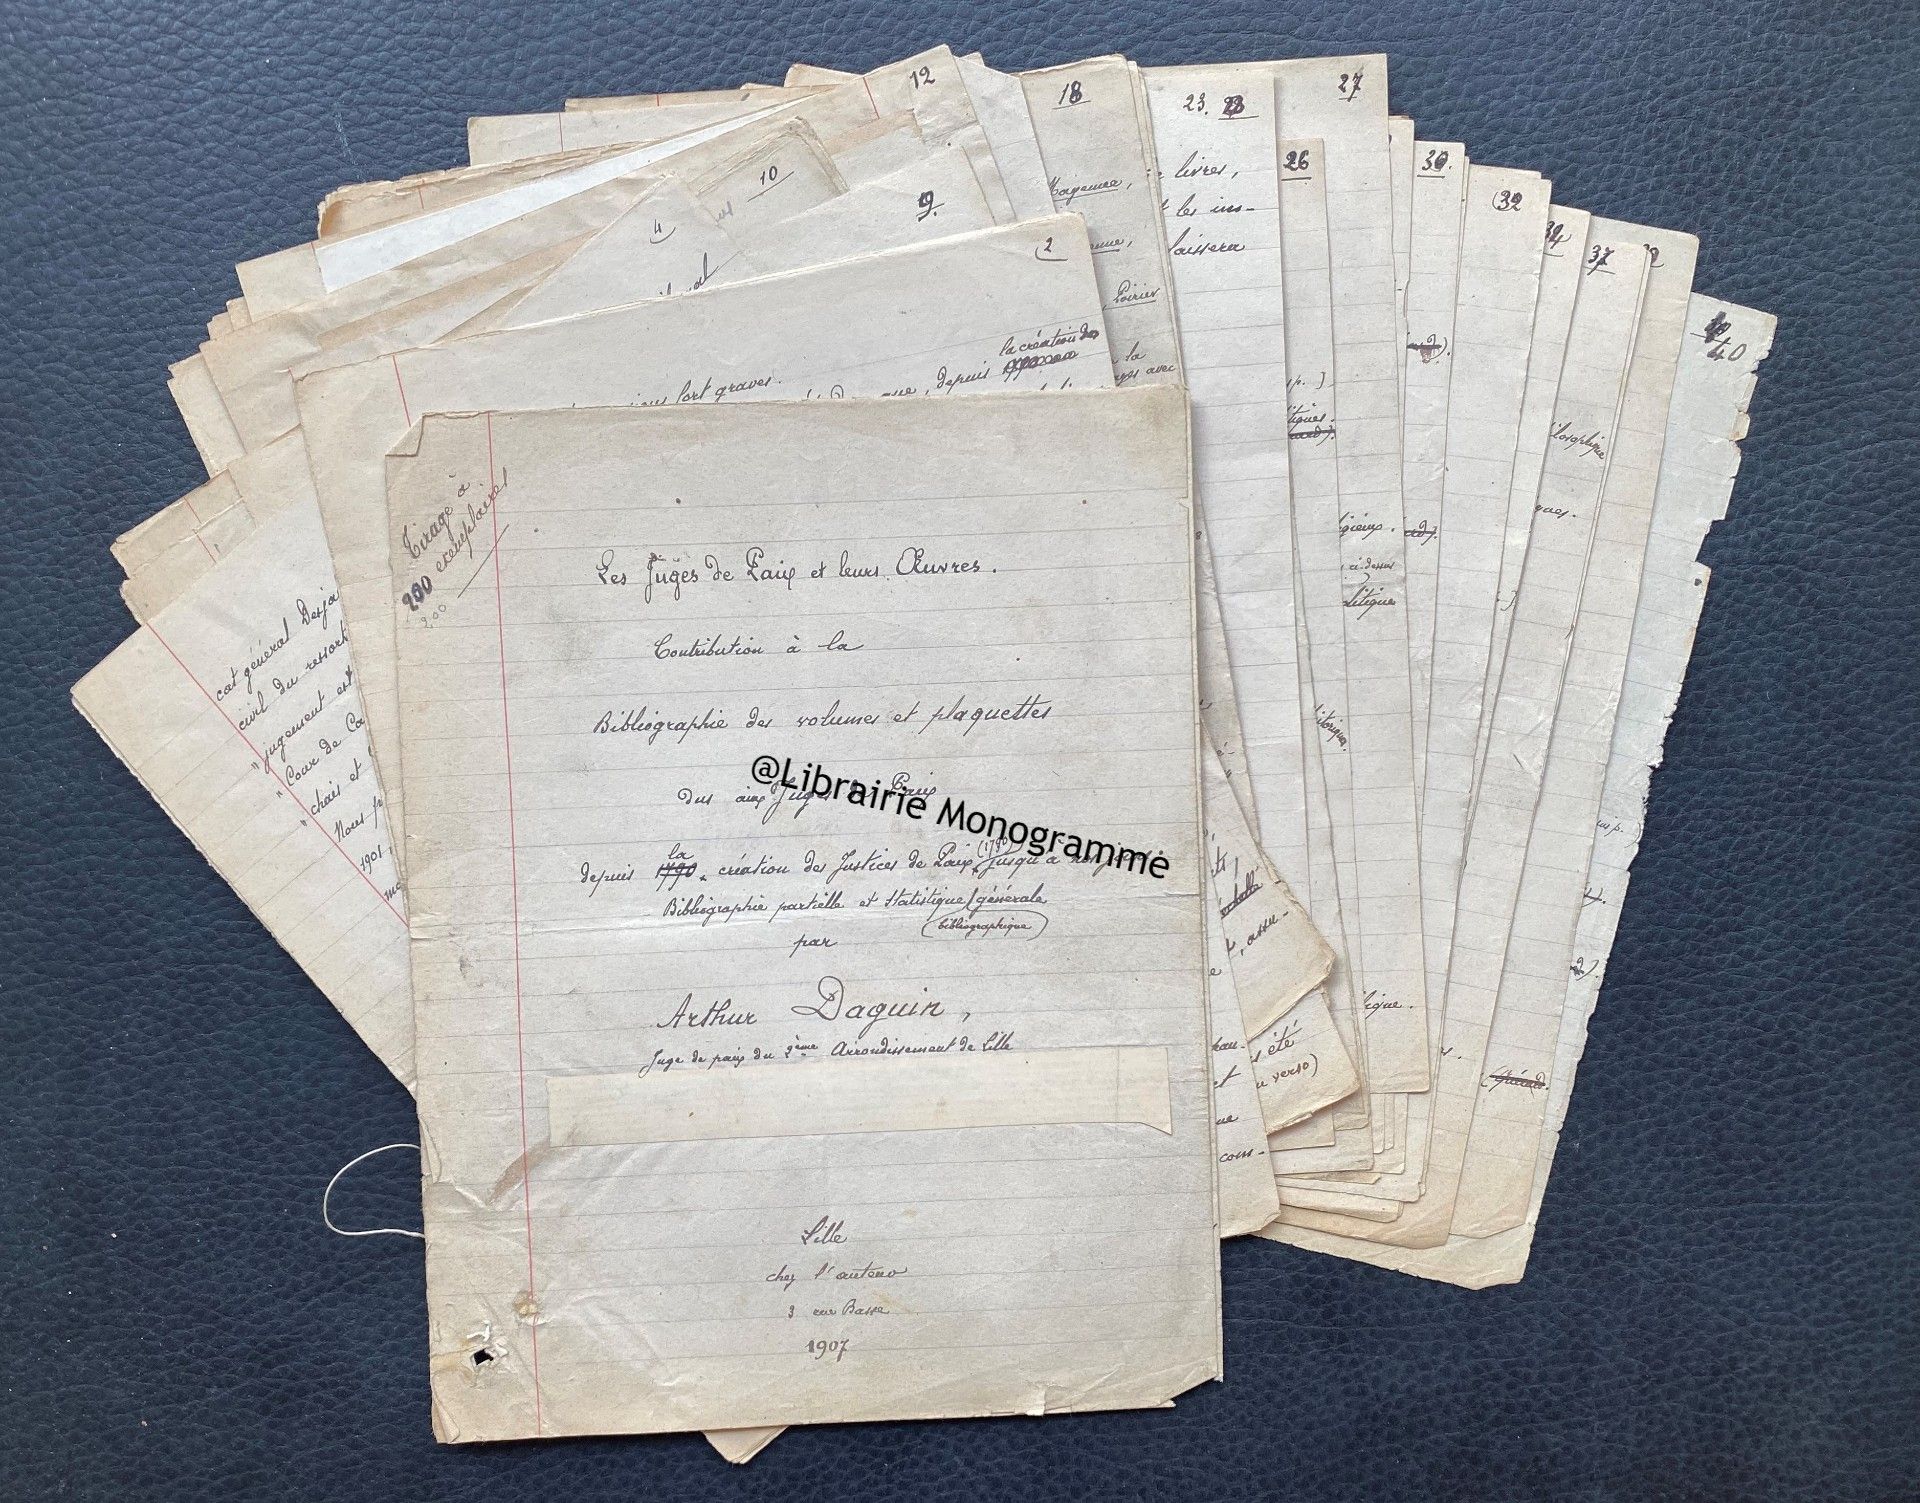 12
18
23.
27
26
30.
32
34
37
40
10
9.
4
2
livres,
t les ins-
laissera
Poirier
la création des
fort graves.
depuis
la
avec
Tirage à
200 exemplaires
200
Les Juges de Paix et leurs Œuvres.
Contribution à la
Bibliographie des volumes et plaquettes
dus aux Juges de Paix
depuis la 1790 création des Justices de Paix (1790) jusqu'à nos jours
Bibliographie partielle et Statistique générale
(bibliographique)
par
Arthur Daguin,
Juge de paix du 2ème Arrondissement de Lille
Lille
chez l'auteur
3 rue Basse
1907
@Librairie Monogramme
cat général Desja
civil du ressort
"jugement est
"Cour de Ca
"chais et
Nous p
1901,
ilosophique
ques.
tiques.
gieux.
ci-dessus
litique
itorique.
, assu-
été
u verso)
et
ue
com-